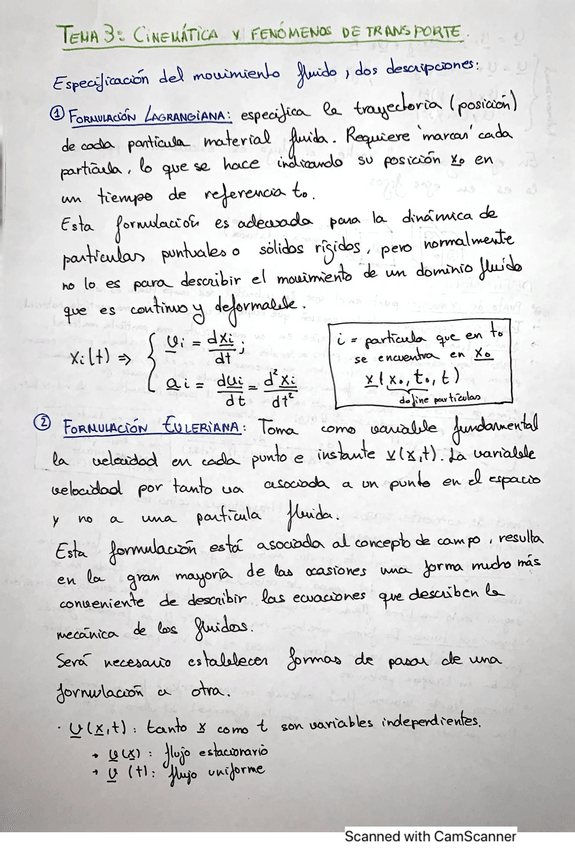 TEMA 3: CINEMÁTICA Y FENÓMENOS DE TRANSPORTE.
Especificación del movimiento fluido, dos descripciones:
① FORMULACIÓN LAGRANGIANA: especifica la trayectoria (posición)
de cada partícula material fluida. Requiere 'marcar' cada
partícula, lo que se hace indicando su posición x̲₀ en
un tiempo de referencia t₀.
Esta formulación es adecuada para la dinámica de
partículas puntuales o sólidos rígidos, pero normalmente
no lo es para describir el movimiento de un dominio fluido
que es continuo y deformable.
xᵢ(t) ⇒ { v̲ᵢ = dxᵢ/dt ;
a̲ᵢ = dvᵢ/dt = d²xᵢ/dt²
i = partícula que en t₀
se encuentra en x̲₀
x̲(x₀, t₀, t)
define partículas
② FORMULACIÓN EULERIANA: Toma como variable fundamental
la velocidad en cada punto e instante v̲(x̲,t). La variable
velocidad por tanto va asociada a un punto en el espacio
y no a una partícula fluida.
Esta formulación está asociada al concepto de campo, resulta
en la gran mayoría de las ocasiones una forma mucho más
conveniente de describir las ecuaciones que describen la
mecánica de los fluidos.
Será necesario establecer formas de pasar de una
formulación a otra.
· v̲(x̲,t): tanto x̲ como t son variables independientes.
→ v̲(x̲): flujo estacionario
→ v̲(t): flujo uniforme
Scanned with CamScanner